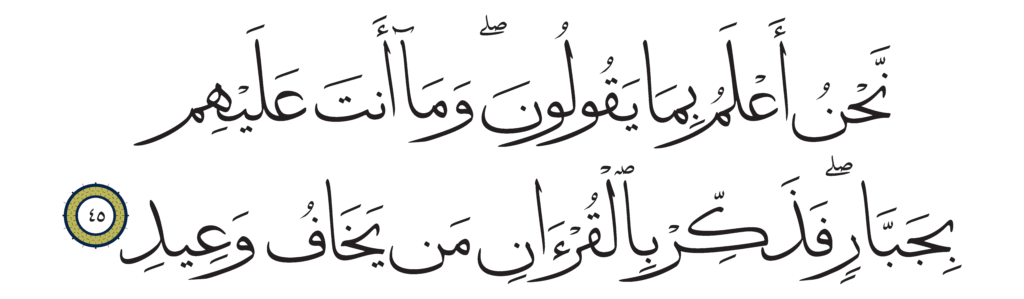 نَّحْنُ أَعْلَمُ بِمَا يَقُولُونَ ۖ وَمَآ أَنتَ عَلَيْهِم
بِجَبَّارٍ ۖ فَذَكِّرْ بِٱلْقُرْءَانِ مَن يَخَافُ وَعِيدِ ٤٥